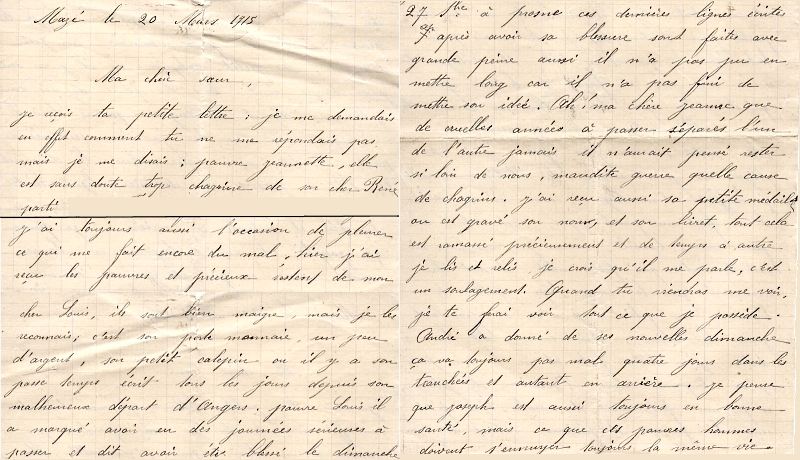 Mazé le 20 Mars 1915
Ma chèr sœur,
je reçois ta petite lettre ; je me demandais
en effet comment tu ne me répondais pas
mais je me disais ; pauvre jeannette, elle
est sans doute trop chagrine de son cher René
parti
j'ai toujours aussi l'occasion de pleurer
ce qui me fait encore du mal, hier j'ai
reçu les pauvres et précieux restent de mon
cher Louis, ils sont bien maigre, mais je les
reconnais ; c'est son porte monnaie, un peu
d'argent, son petit calepin ou il y a son
passe temps écrit tous les jours depuis son
malheureux départ d'Angers. pauvre Louis il
a marqué avoir eu des journées sérieuses à
passer et dit avoir été blessé le dimanche
27 à presme ces dernières lignes écrites
après avoir sa blessure sont faites avec
grande peine aussi il n'a pas pu en
mettre long car il n'a pas fini de
mettre son idée. Ah ! ma chère jeanne que
de cruelles années à passer séparés l'un
de l'autre jamais il n'aurait pensé rester
si loin de nous, maudite guerre quelle cause
de chagrins. j'ai reçu aussi sa petite médaille
ou est gravé son nom, et son livret, tout cela
est ramassé précieusement et de temps à autre
je lis et relis je crois qu'il me parle, c'est
un soulagement. Quand tu viendras me voir,
je te ferai voir tout ce que je possède.
André a donné de ses nouvelles dimanche
ça va toujours pas mal quatre jours dans les
tranchées et autant en arrière. je pense
que joseph est aussi toujours en bonne
santé, mais ce que ces pauvres hommes
doivent s'ennuyer toujours la même vie